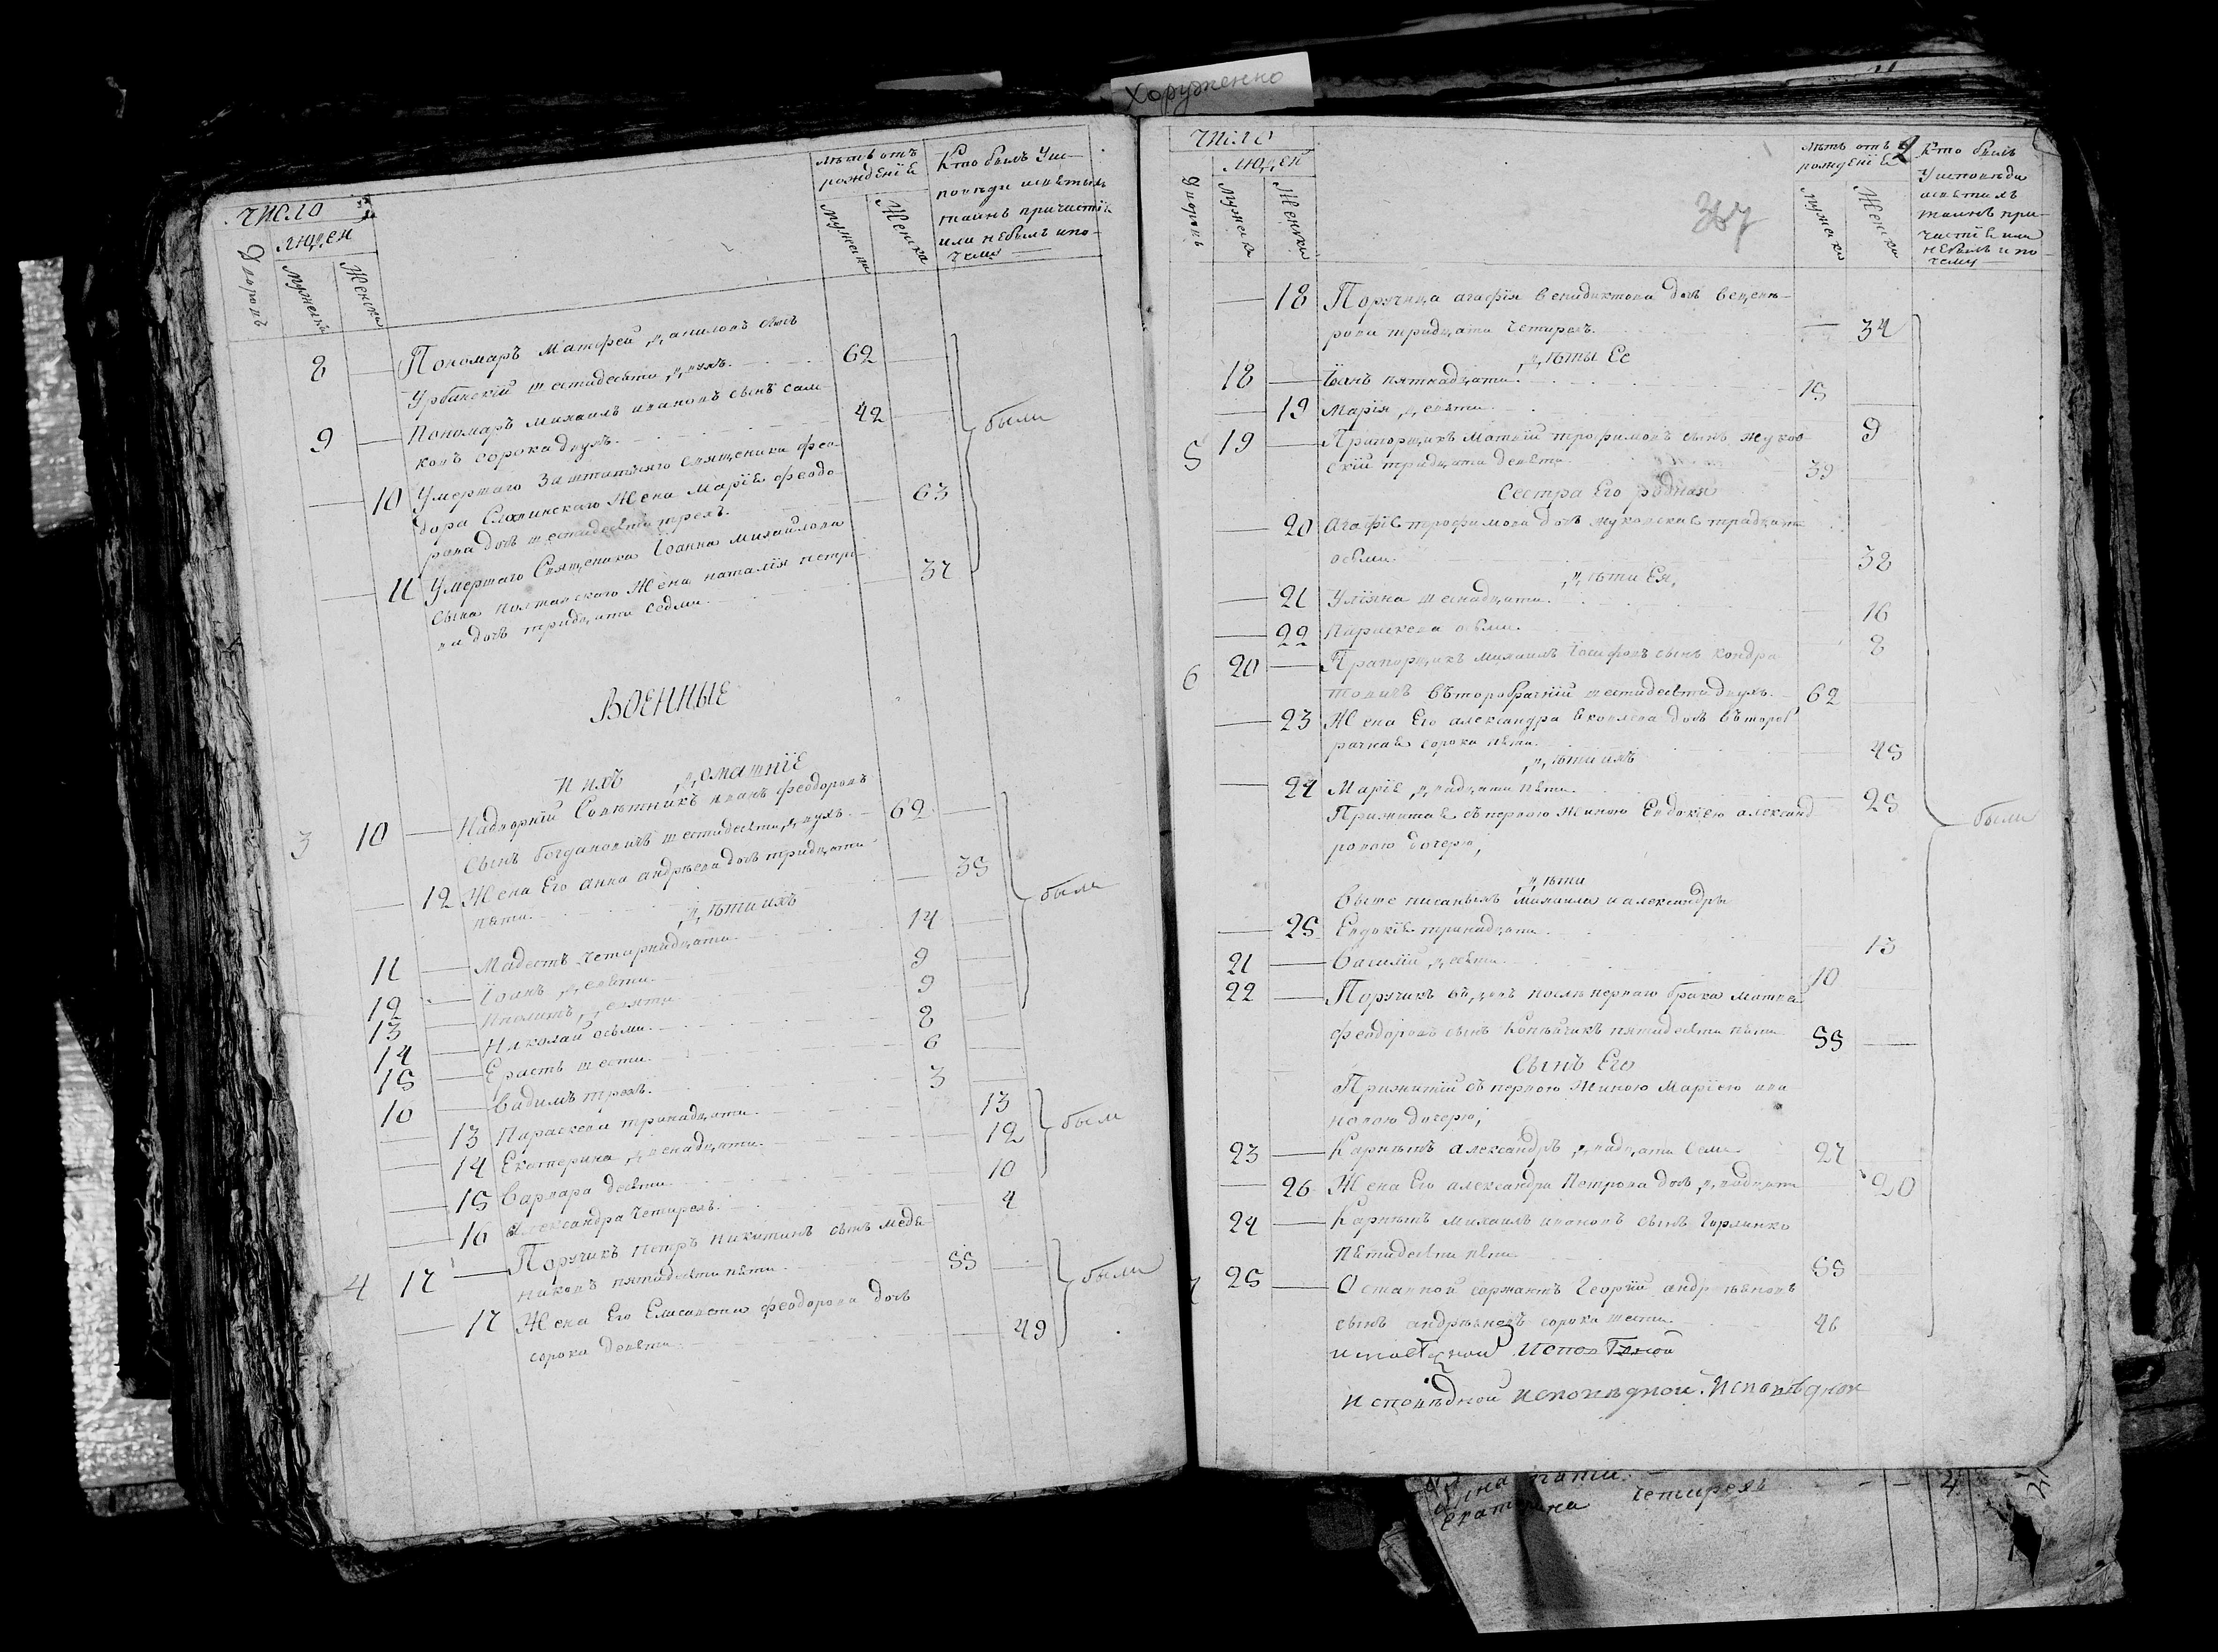 Хоруженко
ЧИСЛО
людей
Дворовъ
мужеска
Женска
лѣтъ отъ
рожденїѧ
мужеска
Женска
Кто былъ Уис
повѣди исвѧтыхъ
таинъ причастїѧ
или небылъ ипо-
чему
8 — Пономаръ Матфей даниловъ сынъ
Урбанскїй шестидесѧти двухъ. 62
9 — Пономаръ михаилъ ивановъ сынъ сам
ковъ сорока двухъ. 42
— 10 Умершаго Заштатнаго Священика фео-
дора Слотинскаго Жена Марїѧ феодо
рова дочь шестидесѧти трехъ. — 63
— 11 Умершаго Священика Iоанна михайлова
сына полтавскаго Жена наталїя петро
ва дочь тридцати седми. — 37
были
ВОЕННЫЕ
и ихъ домашнїе
3 10 — Надворнїй Совѣтникъ иванъ феодоровъ
сынъ богдановичъ шестидесѧти двухъ. 62 —
— 12 Жена Его анна андрѣева дочь тридцати
пѧти. — 35
дѣти ихъ
11 — Мадестъ Четырнадцати 14 —
12 — Iоанъ девѧти. 9
13 — Иполитъ девяти 9
14 — Николай осьми. 8
15 — Ерастъ шести. 6
16 — Вадимъ трехъ. 3
были
— 13 Параскева тринадцати. 13
— 14 Екатерина двенадцати. 12
— 15 Варвара десѧти 10
— 16 Александра Четырехъ. 4
были
4 17 — Поручикъ Петръ Никитинъ сынъ медв
никовъ пятидесѧти пѧти. 55 —
— 17 Жена Его Елисавета феодорова дочь
сорока девѧти. — 49
были
ЧИСЛО
людей
Дворовъ
мужеска
Женска
367
лѣтъ отъ
рожденїѧ
2
мужеска
Женска
Кто былъ
Уисповѣди
исвѧтыхъ
таинъ при-
частїѧ или
небылъ ипо-
чему
— 18 Поручица агафїя венидиктова дочь веценѣ-
рова тридцати Четырехъ. — 34
дѣты Ее
18 — Iванъ пятнадцати. 15
— 19 Марїя девѧти. 9
5 19 — Прапорщикъ Матвїй трофимовъ сынъ жуков
скїй тридцати девѧти 39
Сестра Его родная
— 20 агафїѧ трофимова дочь жуковскаѧ тридцати
осьми. 38
дѣти Ея,
— 21 Улїяна шеснадцати. 16
— 22 Параскева осьми. 8
6 20 — Прапорщикъ михаилъ Iосифовъ сынъ кондра
товичъ въторобрачнїй шестидесѧти двухъ. 62
— 23 Жена Его александра Яковлева дочь вътороб
рачнаѧ сорока пѧти. 45
дѣти ихъ
— 24 Марїѧ двадцати пѧти. 25
Прижитаѧ съ первою Женою Евдокїею александ
ровою дочерю,
дѣти
выше писаныхъ михаила и александры
— 25 Евдокїѧ тринадцати. 13
21 — Василїй десѧти. 10
22 — Поручикъ въдовъ послѣ первого брака матвей
феодоровъ сынъ Копѣйчикъ пятидесѧти пѧти 55 —
Сынъ Его
Прижитїй съ первою Женою Марїею ива
новою дочерю,
23 — Карнетъ александръ двадцати семи 27
— 26 Жена Его александра Петрова дочь двадцати 20
24 — Карнетъ михаилъ ивановъ сынъ Горлинко
пѧтидесѧти пѧти 55
7 25 — Отставной саржантъ Георгїй андрѣяновъ
сынъ андрѣяновъ сорока шести. 46
были
Исповѣдной Исповѣдной. Исповѣдной
пати.
Екатерина Четирехъ — — 4